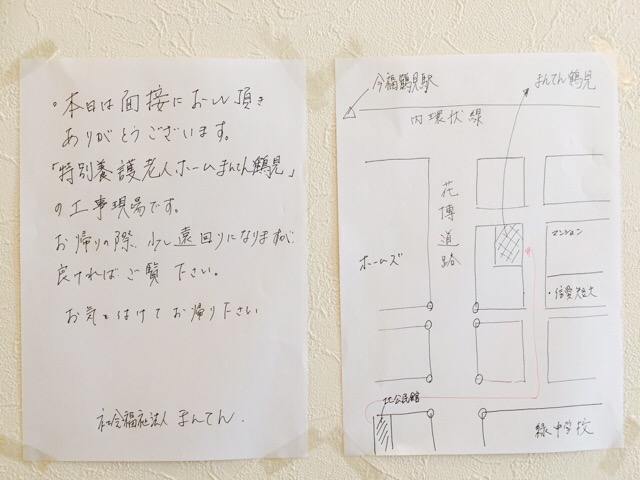 ・本日は面接にお越し頂き
ありがとうございます。
「特別養護老人ホームまんてん鶴見」
の工事現場です。
お帰りの際、少し遠回りになりますが、
良ければご覧下さい。
お気を付けてお帰り下さい
社会福祉法人 まんてん.
今福鶴見駅
まんてん鶴見
内環状線
花博道路
ホームズ
マンション
・信愛短大
公民館
緑中学校